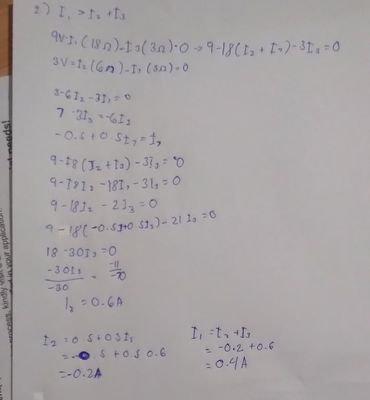 2) I₁ > I₂ + I₃
9V-I₁(18Ω)-I₃(3Ω)=0 → 9-18(I₂+I₃)-3I₃=0
3V=I₂(6Ω)-I₃(3Ω)=0
3-6I₂-3I₃=0
-0.5+0.5I₃=I₂
9-18(I₂+I₃)-3I₃=0
9-18I₂-18I₃-3I₃=0
9-18I₂-2I₃=0
9-18(-0.5+0.5I₃)-21I₃=0
18-30I₃=0
-30I₃
-30
I₃=0.6A
I₂=0.5+0.5I₃
=-0.5+0.5 0.6
=-0.2A
I₁=I₂+I₃
=-0.2+0.6
=0.4A
needs!
in your application.
process, kindly